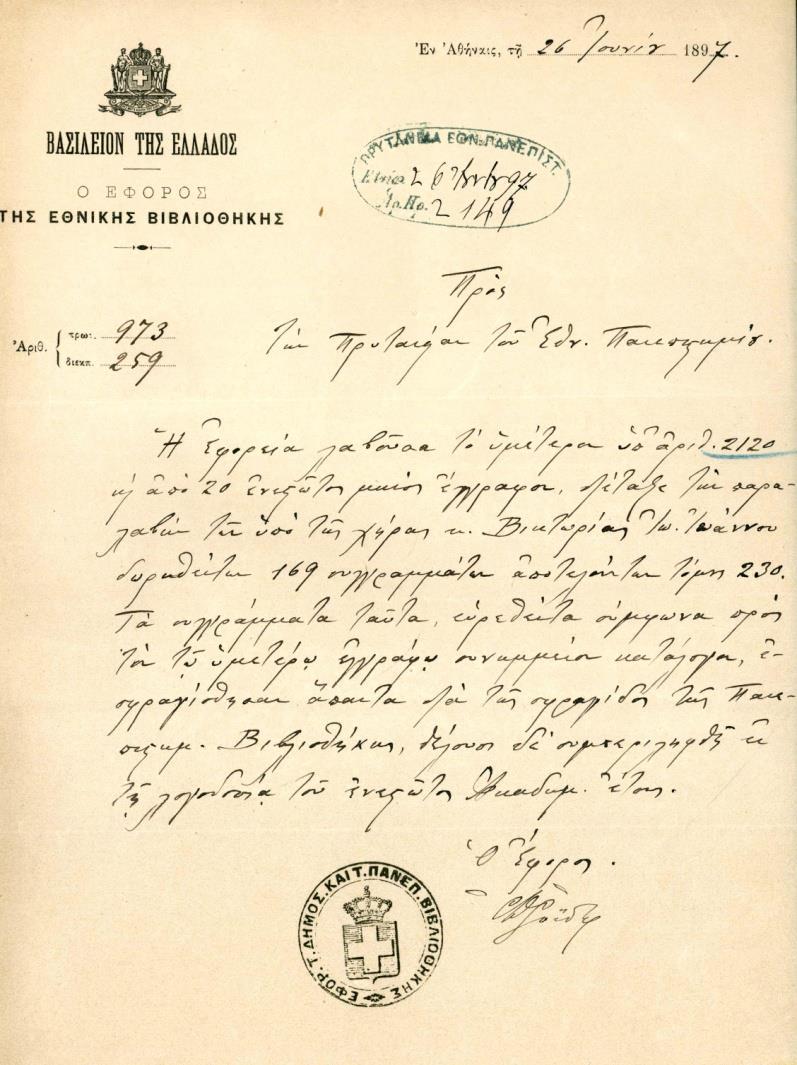 Ἐν Ἀθήναις, τῇ 26 Ἰουνίου 1897.
ΒΑΣΙΛΕΙΟΝ ΤΗΣ ΕΛΛΑΔΟΣ
Ο ΕΦΟΡΟΣ
ΤΗΣ ΕΘΝΙΚΗΣ ΒΙΒΛΙΟΘΗΚΗΣ
ΠΡΥΤΑΝΕΙΑ ΕΘΝ. ΠΑΝΕΠΙΣΤ.
26 Ἰουν 97
Ἀρ. Πρ. 2149
Ἀριθ. πρωτ. 973
διεκπ. 259
Πρὸς
τὴν Πρυτανείαν τοῦ Ἐθν. Πανεπιστημίου.
Ἡ Ἐφορεία λαβοῦσα τὸ ὑμέτερον ὑπ' ἀριθ. 2120
κ ἀπὸ 20 ἐνεστῶτος μηνὸς ἔγγραφον, διέταξε τὴν παρα-
λαβὴν τῶν ὑπὸ τῆς χήρας κ. Βικτωρίας Ἰω. Ἰωάννου
δωρηθέντων 169 συγγραμμάτων ἀποτελούντων τόμους 230.
Τὰ συγγράμματα ταῦτα, εὑρεθέντα σύμφωνα πρὸς
τὸν τῷ ὑμετέρῳ ἐγγράφῳ συνημμένον κατάλογον, ἐ-
σφραγίσθησαν ἅπαντα διὰ τῆς σφραγῖδος τῆς Πανε-
πιστημ. Βιβλιοθήκης, θέλουσι δὲ συμπεριληφθῆ ἐν
τῇ λογοδοσίᾳ τοῦ ἐνεστῶτος Ἀκαδημ. ἔτους.
Ὁ Ἔφορος.
ΕΦΟΡ. Τ. ΔΗΜΟΣ. ΚΑΙ Τ. ΠΑΝΕΠ. ΒΙΒΛΙΟΘΗΚΗΣ